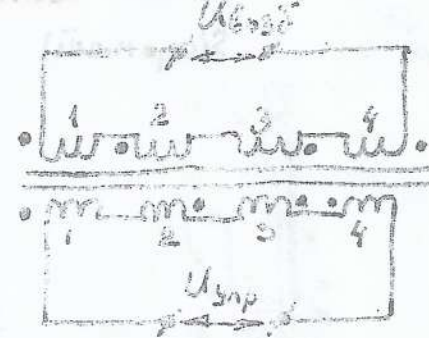 Uвозб
1 2 3 4
1 2 3 4
Uупр